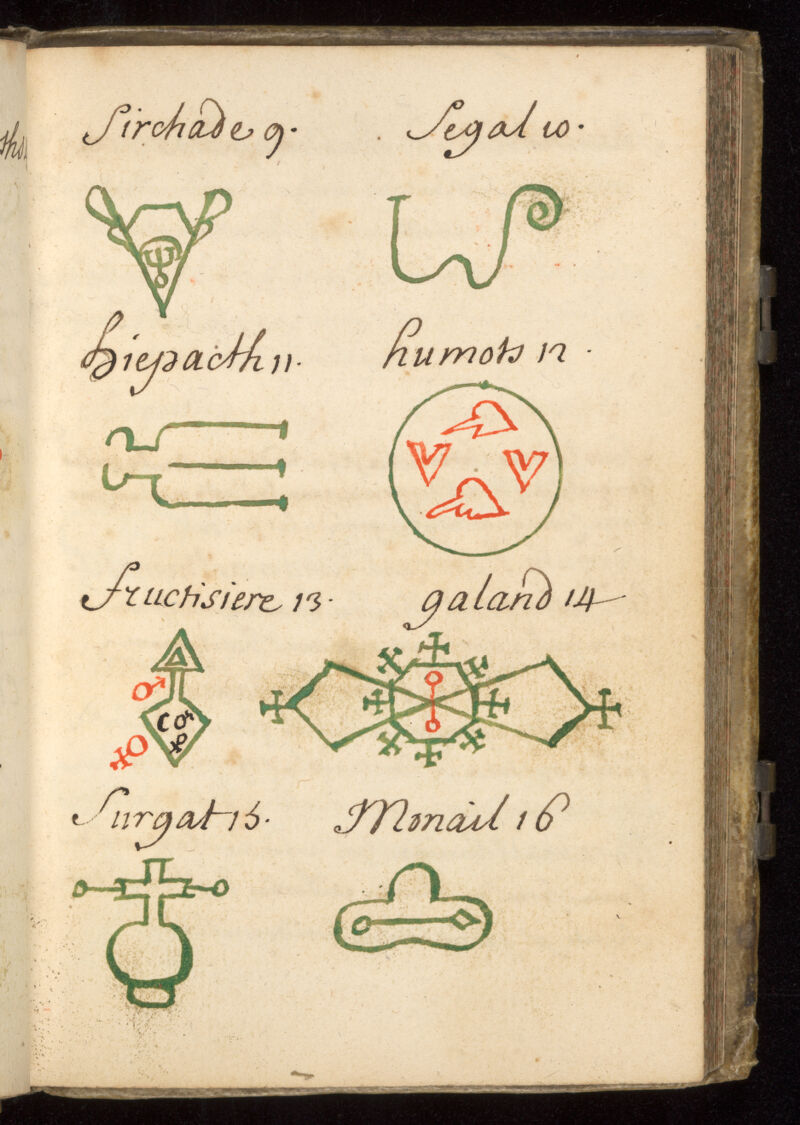 Sirchade 9. Segal 10.
hiepacth 11. humots 12.
fructisiere 13. galand 14
Surgat 15. Monail 16